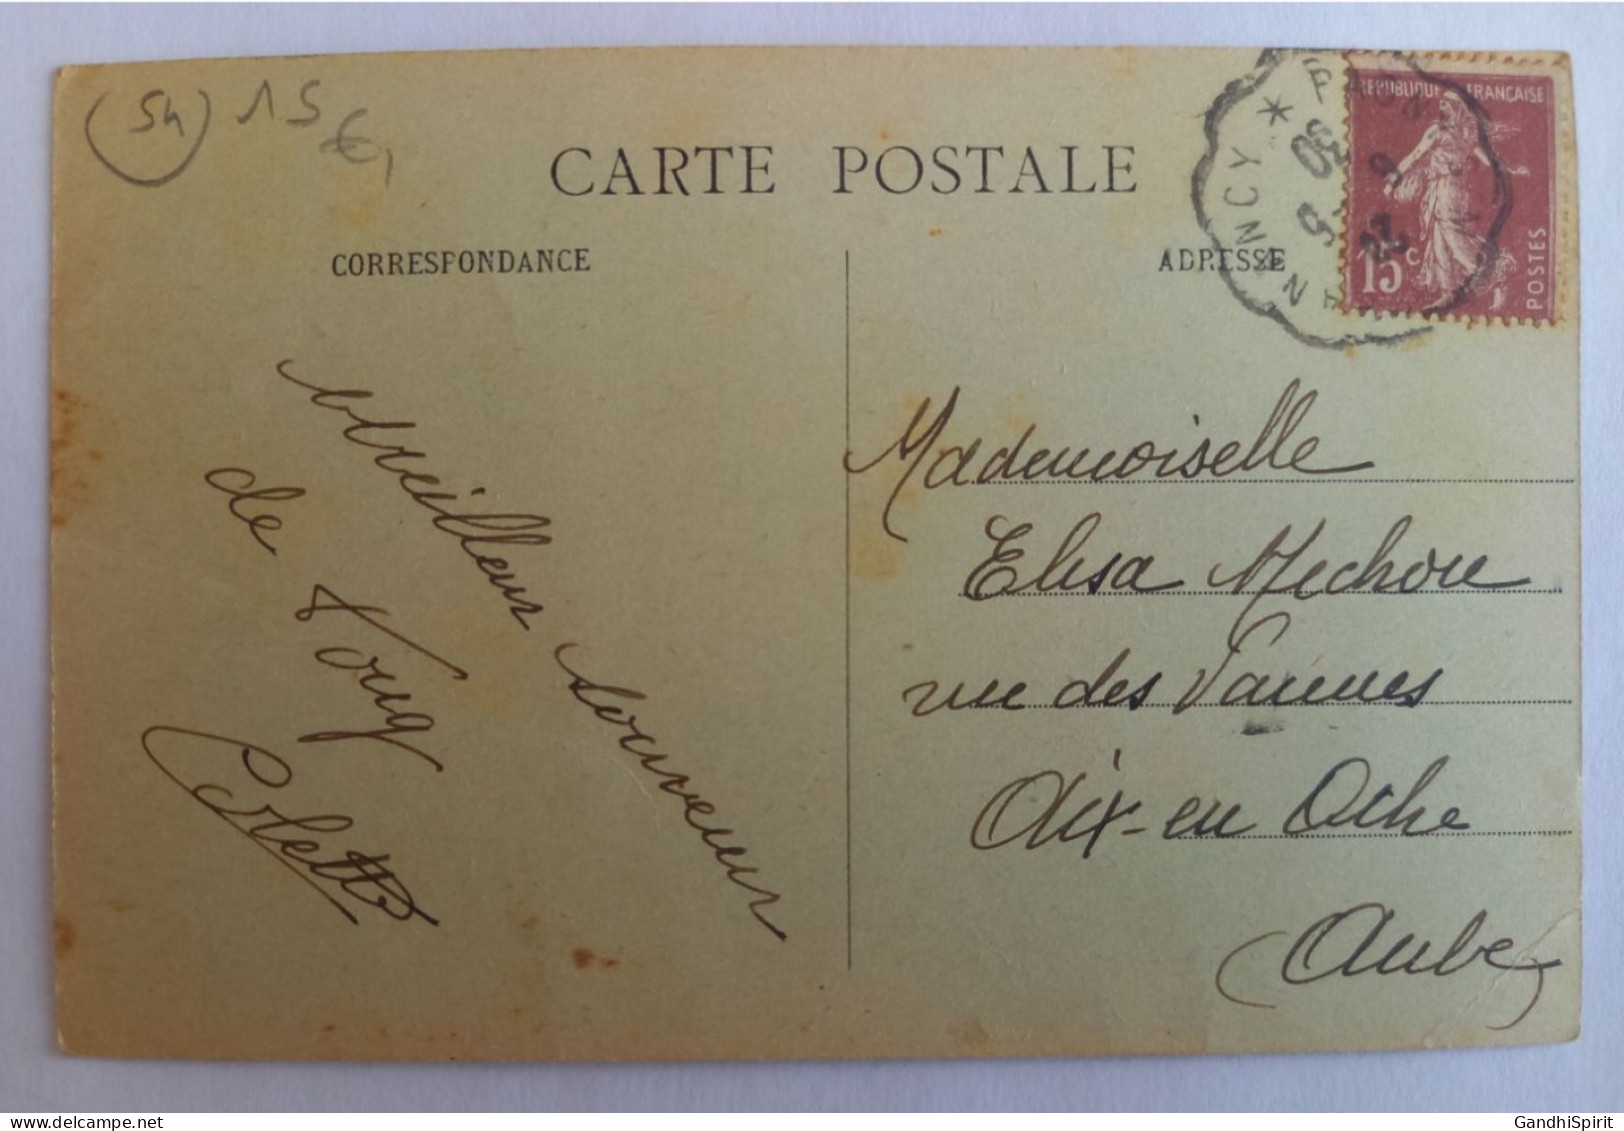 (54) 15 €,
CARTE POSTALE
CORRESPONDANCE
ADRESSE
REPUBLIQUE FRANÇAISE
15c
POSTES
NCY
30
5
Meilleur souvenir
de Foug
Colette
Mademoiselle
Elisa Michou
rue des Vannes
Aix-en Othe
(Aube)
GandhiSpirit